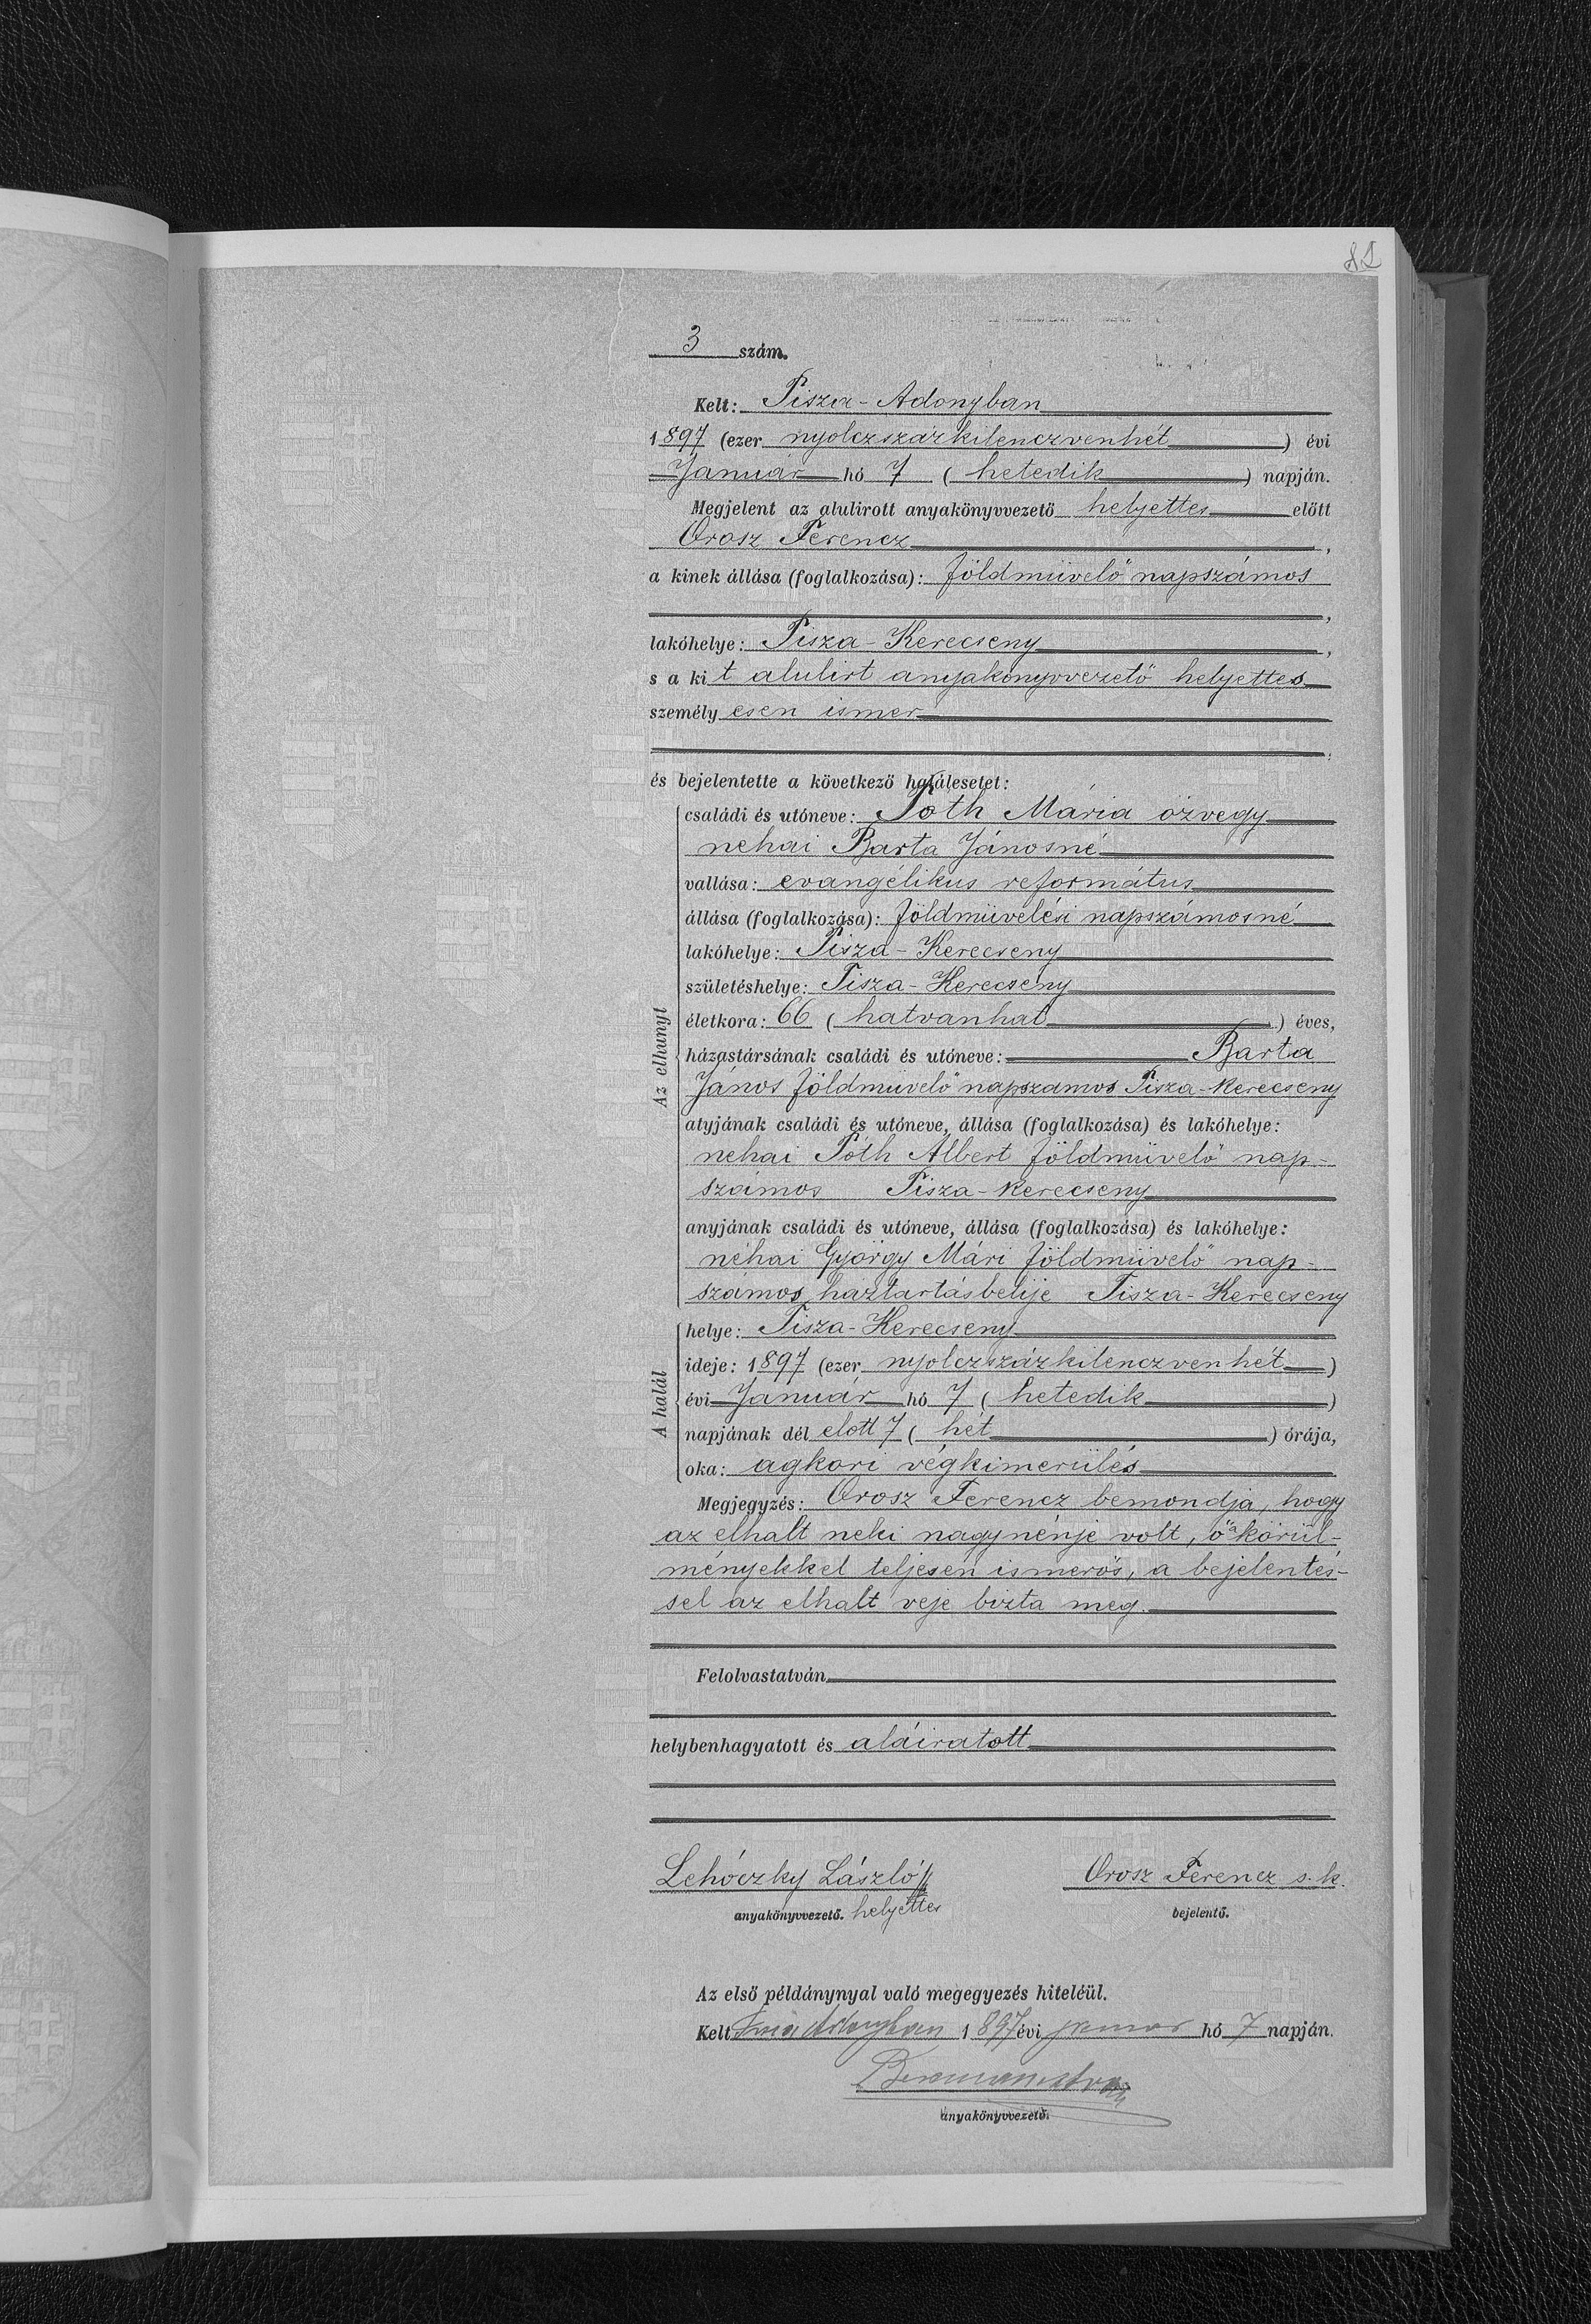 3 szám.
Kelt: Tisza-Adonyban
1897 (ezer nyolczszázkilenczvenhét) évi
Január hó 7 (hetedik) napján.
Megjelent az alulirott anyakönyvvezető helyettes előtt
Orosz Ferencz,
a kinek állása (foglalkozása): földmüvelő napszámos
,
lakóhelye: Tisza-Kerecseny,
s a kit alulirt anyakönyvvezető helyettes
személyesen ismer
és bejelentette a következő halálesetet:
Az elhunyt
családi és utóneve: Tóth Mária özvegy
nehai Barta Jánosné
vallása: evangélikus református
állása (foglalkozása): földmüvelési napszámosné
lakóhelye: Tisza-Kerecseny
születéshelye: Tisza-Kerecseny
életkora: 66 (hatvanhat) éves,
házastársának családi és utóneve: Barta
János földmüvelő napszamos Tisza-Kerecseny
atyjának családi és utóneve, állása (foglalkozása) és lakóhelye:
nehai Tóth Albert földmüvelő nap-
számos Tisza-Kerecseny
anyjának családi és utóneve, állása (foglalkozása) és lakóhelye:
néhai György Mári földmüvelő nap-
számos háztartásbelije Tisza-Kerecseny
A halál
helye: Tisza-Kerecseny
ideje: 1897 (ezer nyolczszázkilenczvenhét)
évi Január hó 7 (hetedik)
napjának dél előtt 7 (hét) órája,
oka: agkori végkimerülés
Megjegyzés: Orosz Ferencz bemondja, hogy
az elhalt neki nagynénje volt, ő a körül-
ményekkel teljesen ismerös, a bejelentés-
sel az elhalt veje bizta meg.
Felolvastatván
helybenhagyatott és aláiratott
Lehóczky László
Orosz Ferencz s.k.
anyakönyvvezető. helyettes
bejelentő.
Az első példánynyal való megegyezés hiteléül.
Kelt Tisza Adonyban 1897 évi januar hó 7 napján.
anyakönyvvezető.